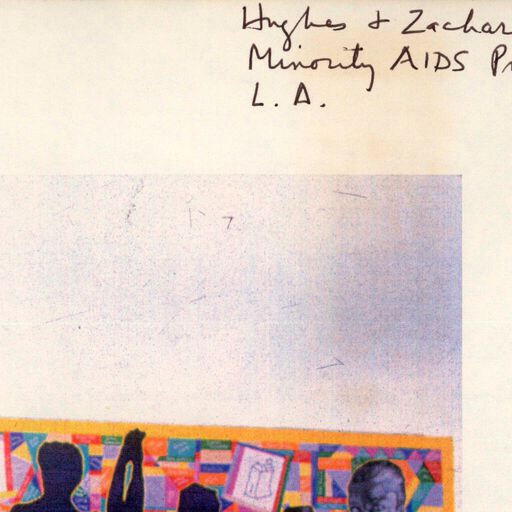 Hughes & Zachar
Minority AIDS Pr
L.A.